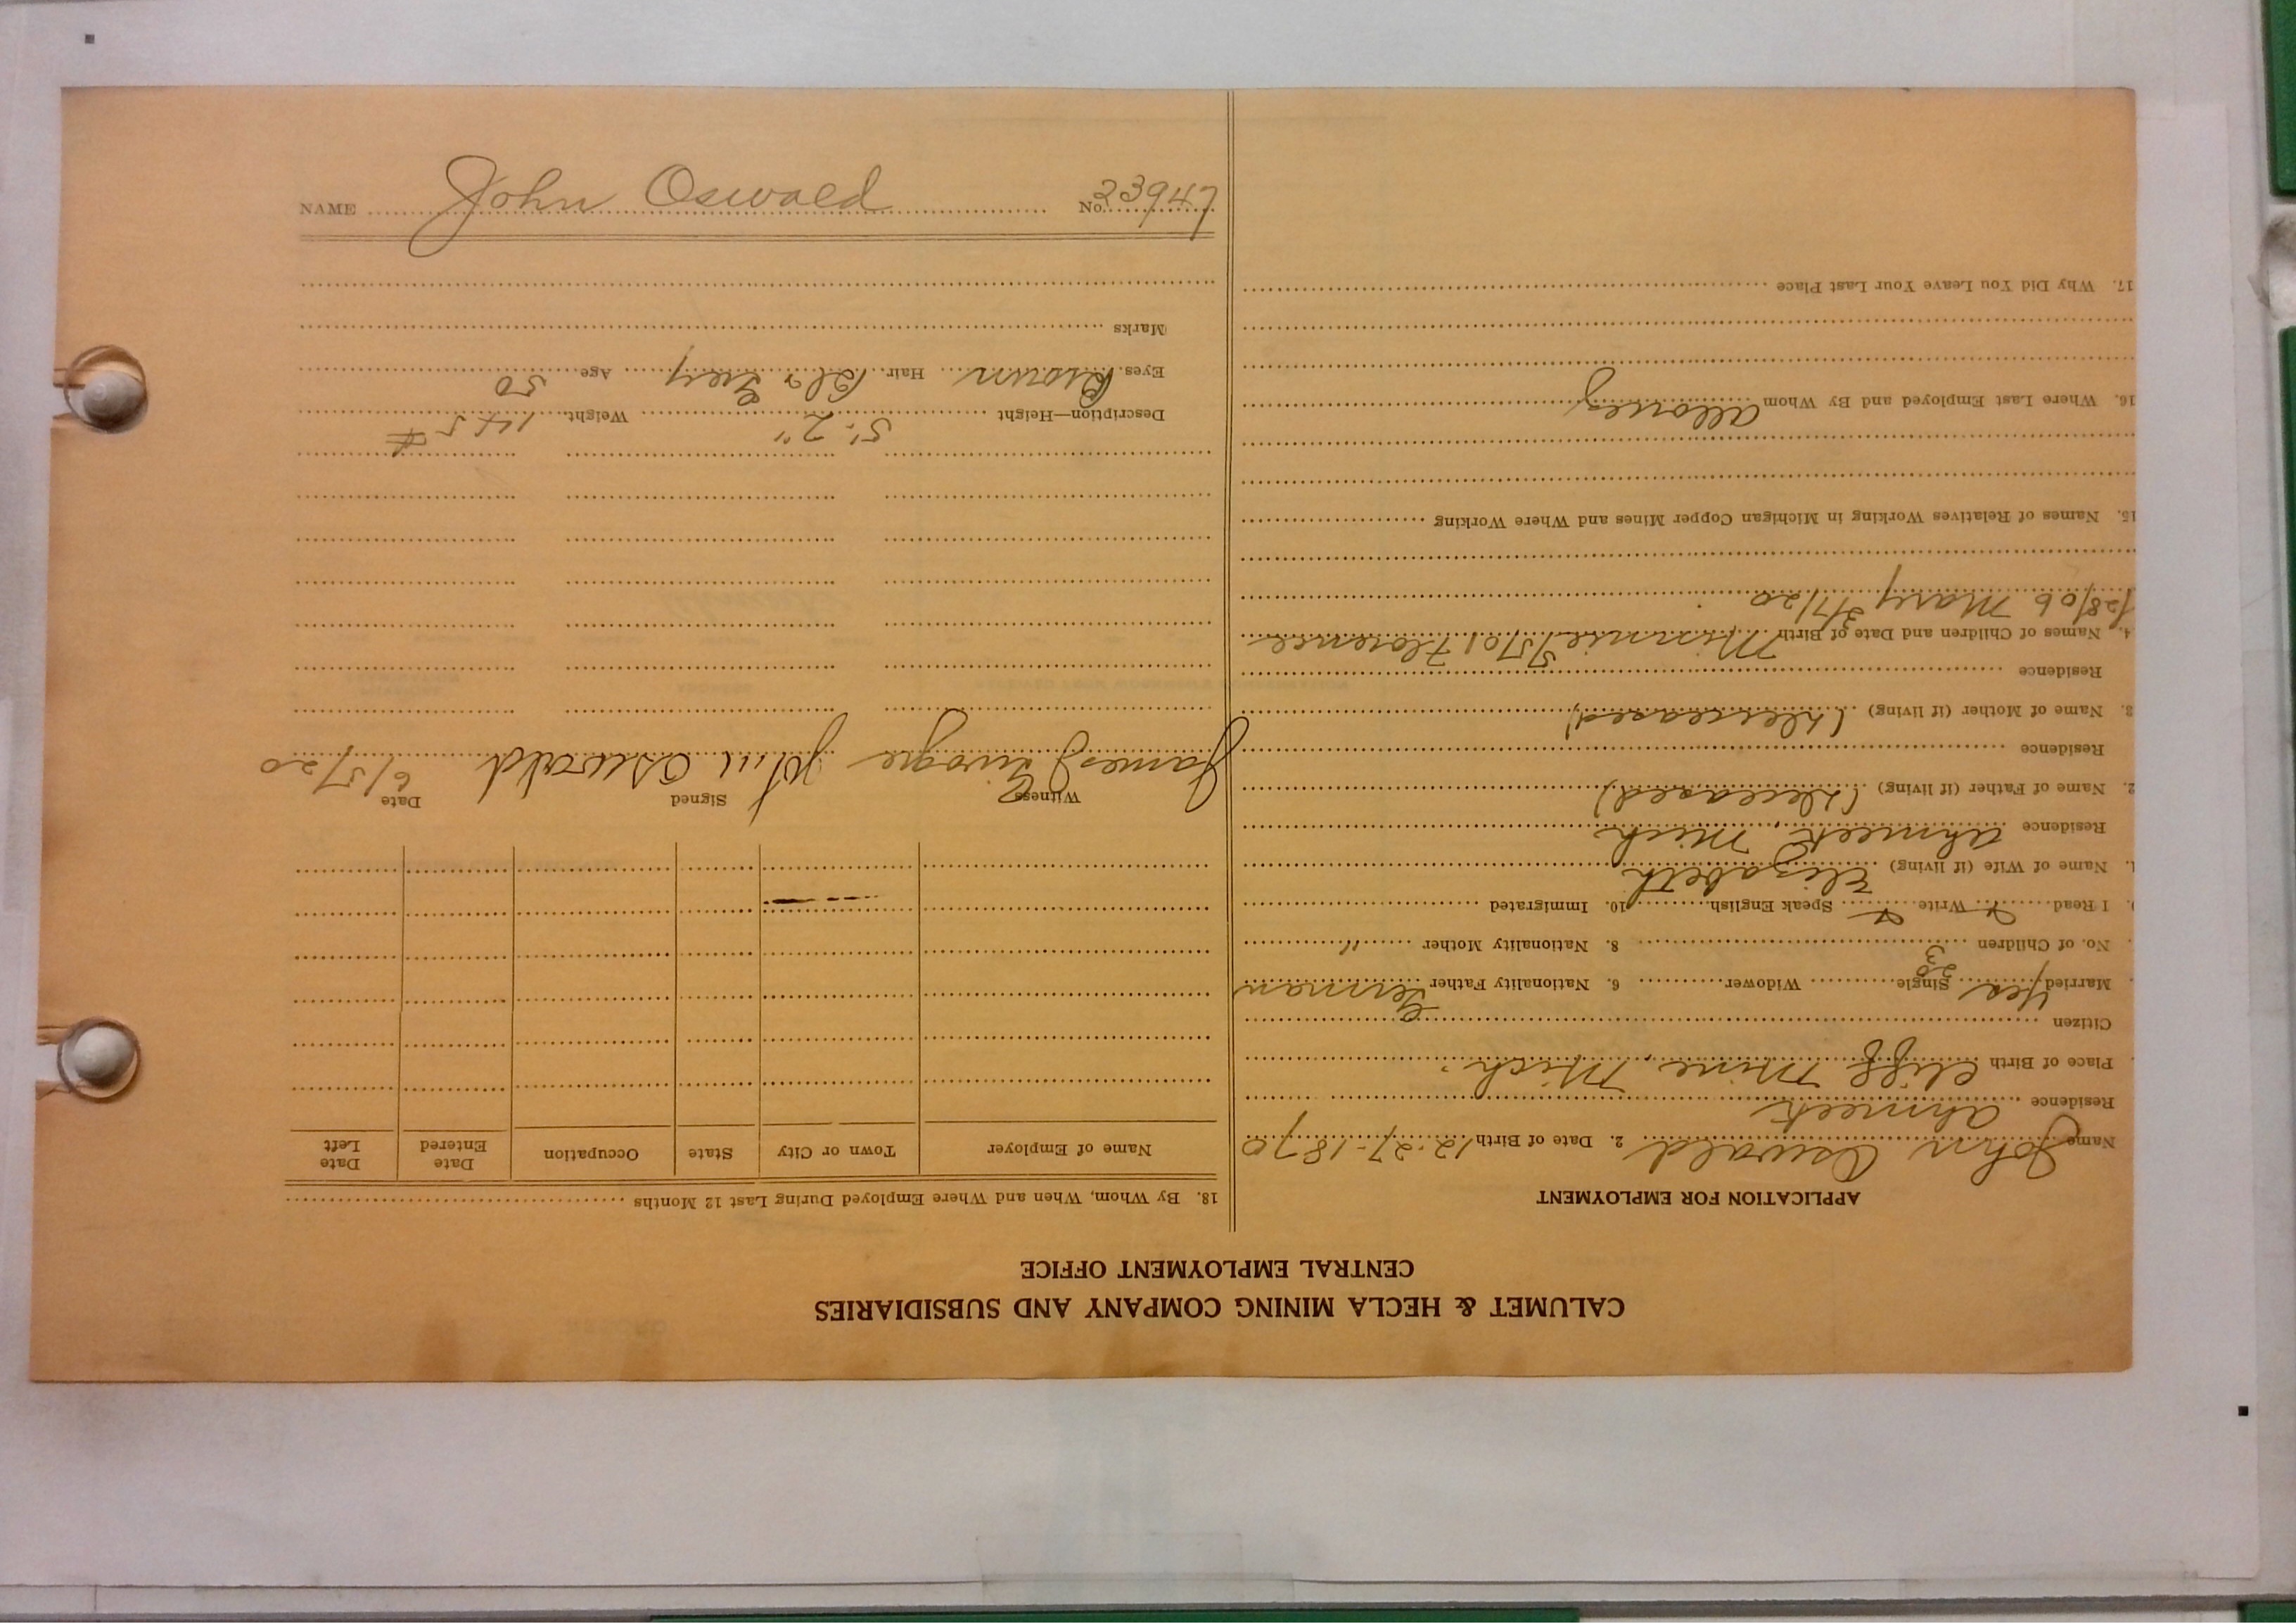 NAME John Oswald No. 23947
CALUMET & HECLA MINING COMPANY AND SUBSIDIARIES
CENTRAL EMPLOYMENT OFFICE
APPLICATION FOR EMPLOYMENT
Name John Oswald 2. Date of Birth 12-27-1870
Residence Ahmeek
Place of Birth Cliff Mine, Mich.
Citizen
Married Yes Single Widower 6. Nationality Father German
No. of Children 3 8. Nationality Mother "
I Read Write Speak English 10. Immigrated
Name of Wife (if living) Elizabeth
Residence Ahmeek, Mich
2. Name of Father (if living) (Deceased)
Residence
3. Name of Mother (if living) (Deceased)
Residence
4. Names of Children and Date of Birth Minnie Florence
Mary 3/7/20
15. Names of Relatives Working in Michigan Copper Mines and Where Working
16. Where Last Employed and By Whom Allouez
17. Why Did You Leave Your Last Place
18. By Whom, When and Where Employed During Last 12 Months
Name of Employer Town or City State Occupation Date Entered Date Left
Witness Signed Date
James John Oswald 6/5/20
Description—Height 5'-2" Weight 145 #
Eyes Brown Hair Grey Age 50
Marks